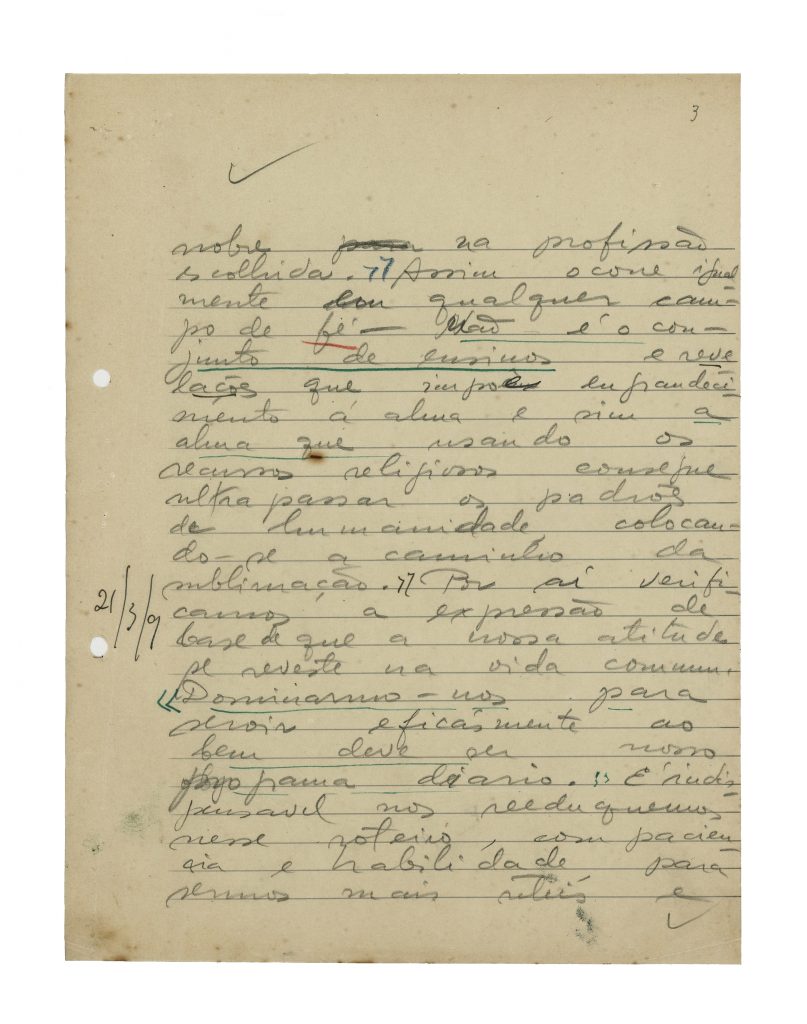 3
nobre na profissão
escolhida.” Assim ocorre igual
mente em qualquer cam-
po de fé — Não é o con-
junto de ensinos e reve
lações que impõe engrandeci-
mento á alma e sim a
alma que usando os
recursos religiosos consegue
ultrapassar os padrões
de humanidade, colocan-
do-se a caminho da
sublimação.” Por aí verifi-
camos a expressão de
base de que a nossa atitude
se reveste na vida commum.
“Dominarmo-nos para
servir eficásmente ao
bem deve ser nosso
programa diario.” É indis-
pensavel nos reeduquemos
nesse roteiro, com paciên-
cia e habilidade para
sermos mais uteis e
21/3/9